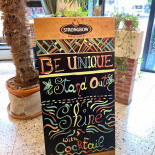 STRONGBOW
BE UNIQUE
Stand Out
Shine
with
Cocktail